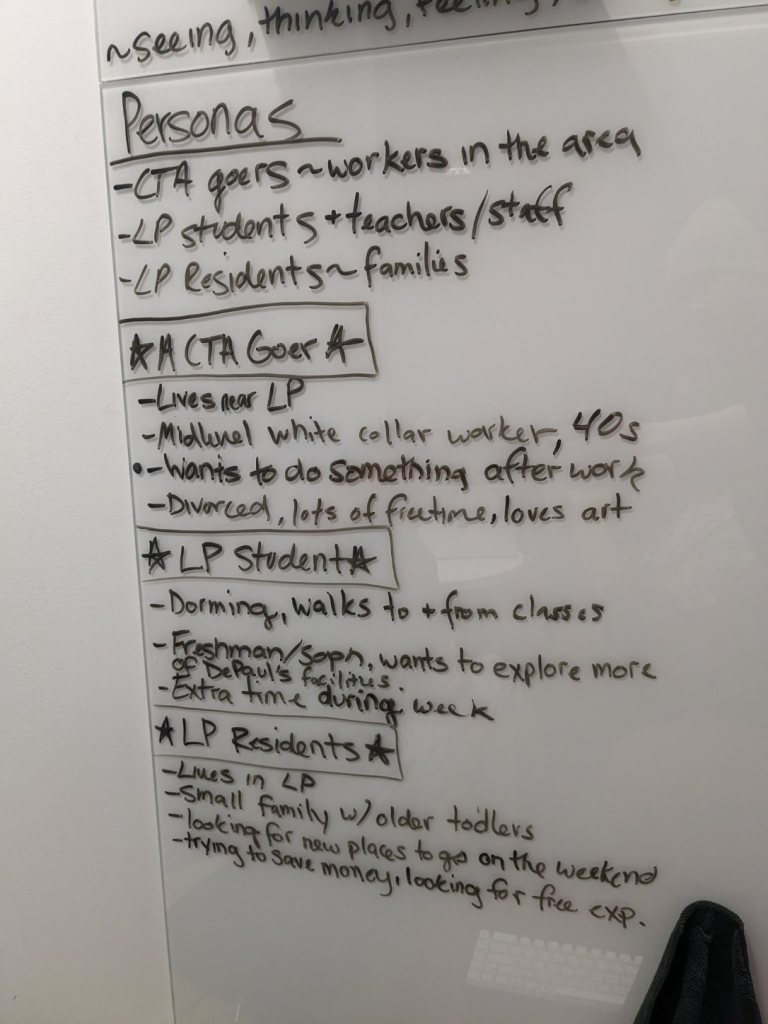 ~seeing, thinking, feeling,
Personas
-CTA goers ~workers in the area
-LP students + teachers/staff
-LP Residents ~ families
☆A CTA Goer☆
-Lives near LP
-Midlevel white collar worker, 40s
•-Wants to do something after work
-Divorced, lots of freetime, loves art
☆LP Student☆
-Dorming, walks to + from classes
-Freshman/Soph, wants to explore more
of DePaul's facilities.
-Extra time during week
☆LP Residents☆
-Lives in LP
-Small family w/ older todlers
-looking for new places to go on the weekend
-trying to save money, looking for free exp.